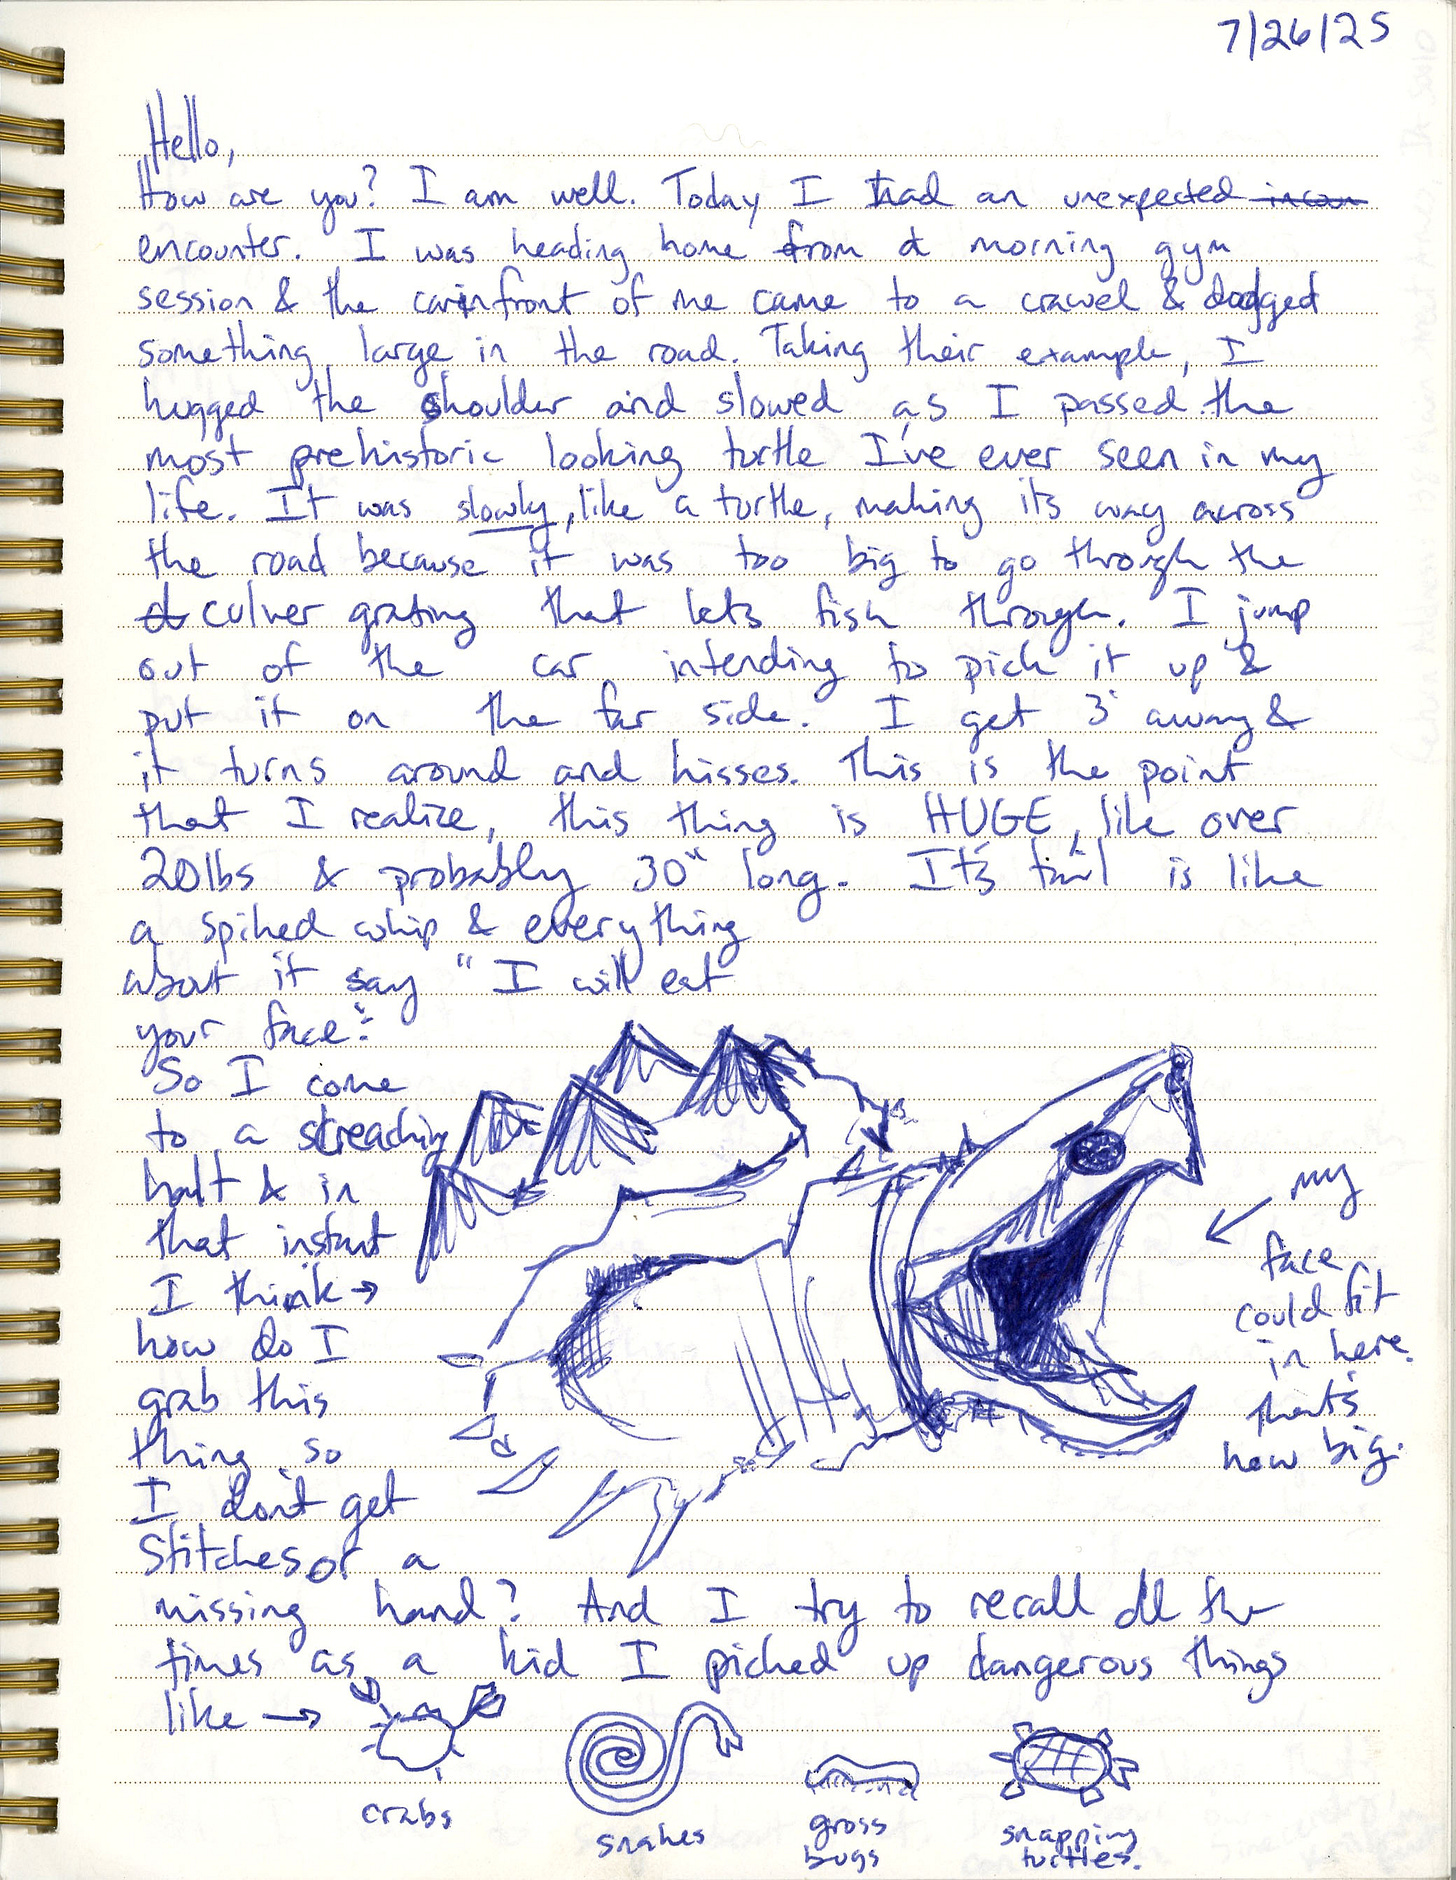 7/26/25
Hello,
How are you? I am well. Today I had an unexpected incoun
encounter. I was heading home from a morning gym
session & the car infront of me came to a crawel & dodged
something large in the road. Taking their example, I
hugged the shoulder and slowed as I passed the
most prehistoric looking turtle I've ever seen in my
life. It was slowly, like a turtle, making its way across
the road because it was too big to go through the
culver grating that lets fish through. I jump
out of the car intending to pick it up &
put it on the far side. I get 3' away &
it turns around and hisses. This is the point
that I realize, this thing is HUGE, like over
20lbs & probably 30" long. It's tail is like
a spiked whip & everything
about it say "I will eat
your face."
So I come
to a screaching
halt & in
that instant
I think →
how do I
grab this
thing so
I don't get
stitches or a
missing hand? And I try to recall all the
times as a kid I picked up dangerous things
like →
my
face
could fit
in here.
that's
how big.
crabs
snakes
gross
bugs
snapping
turtles.